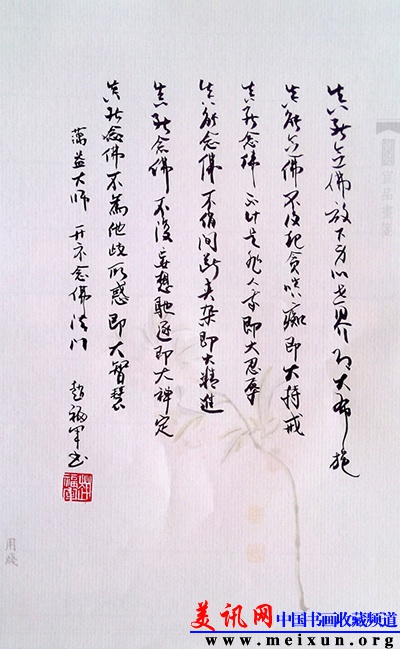 真能念佛放下身心世界即大布施
真能念佛不复起贪嗔痴即大持戒
真能念佛不计是非人我即大忍辱
真能念佛不稍间断夹杂即大精進
真能念佛不復妄想馳逐即大禅定
真能念佛不為他歧所惑即大智慧
蕅益大师 开示念佛法门 趙福军书
用笺
美讯网 中国书画收藏频道
www.meixun.org